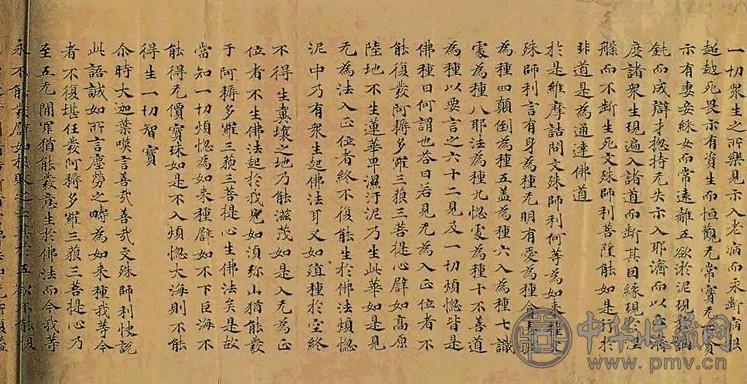 一切衆生之所樂見示入老病而永斷病根
超越死畏示有資生而恒觀无常實无所貪
示有妻妾綵女而常遠離五欲淤泥現
鈍而成辯才惣持无失示入耶濟而以
度諸衆生現遍入諸道而斷其因緣現
槃而不斷生死文殊師利菩薩能如是於
非道是為通達佛道
於是維摩詰問文殊師利何等為如來種
殊師利言有身為種无明有愛為種
為種四顛倒為種五盖為種六入為種七識
處為種八耶法為種九惱處為種十不善道
為種以要言之六十二見及一切煩惱皆是
佛種曰何謂也荅曰若見无為入正位者不
能復發阿耨多羅三藐三菩提心辟如高原
陸地不生蓮華卑濕汙泥乃生此華如是見
无為法入正位者終不復能生於佛法煩惱
泥中乃有衆生起佛法耳又如殖種於空終
不得生糞壤之地乃能滋茂如是入无為正
位者不生佛法起於我見如湏弥山猶能發
于阿耨多羅三藐三菩提心生佛法矣是故
當知一切煩惱為如來種辟如不下巨海不
能得无價寶珠如是不入煩惱大海則不能
得生一切智寶
尒時大迦葉嘆言善哉善哉文殊師利快說
此語誠如所言塵勞之疇為如來種我等今
者不復堪任發阿耨多羅三藐三菩提心乃
至五无間罪猶能發意生於佛法而今我等
永不能發辟如根敗之士其於五欲不能復
中华收藏网
www.pmv.cn